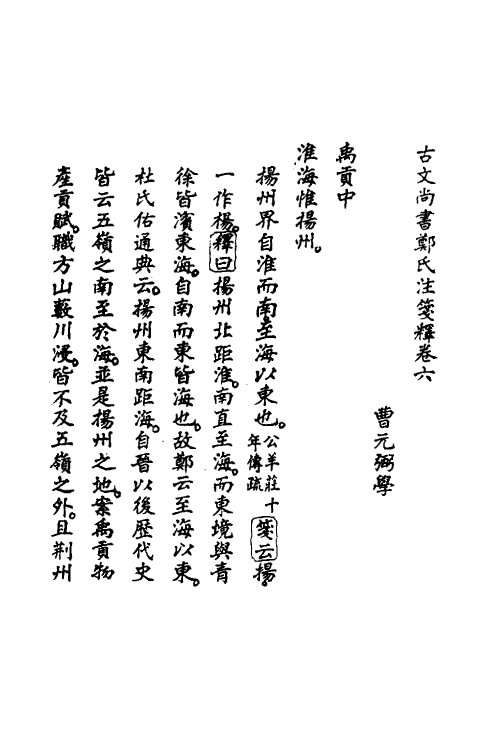 古文尚書鄭氏注箋釋卷六
曹元弼學
禹貢中
淮海惟揚州。
揚州界自淮而南至海以東也。公羊莊十年傳疏箋云揚。
一作楊。釋曰揚州北距淮。南直至海。而東境與青
徐皆濱東海。自南而東皆海也。故鄭云至海以東。
杜氏佑通典云。揚州東南距海。自晉以後歷代史
皆云五嶺之南至於海。並是揚州之地。案禹貢物
產貢賦。職方山藪川浸。皆不及五嶺之外。且荆州